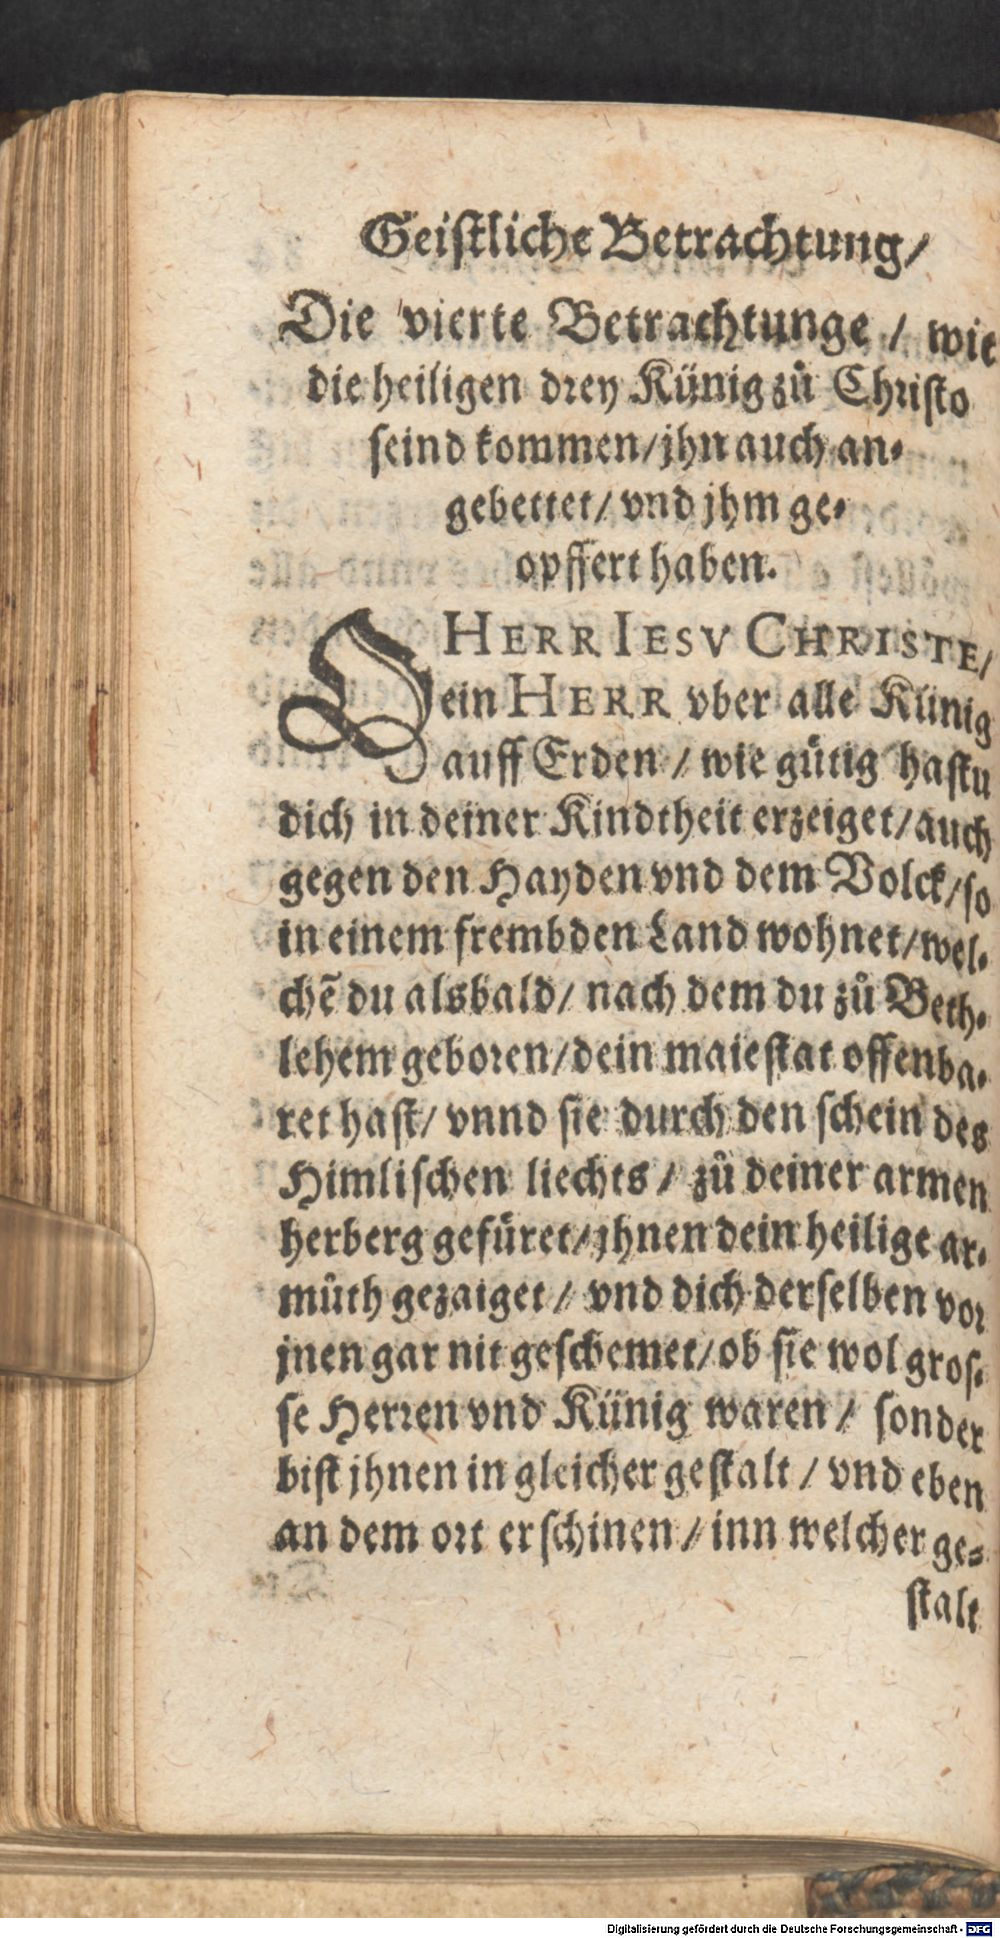 Geiſtliche Betrachtung/
Die vierte Betrachtunge / wie
die heiligen drey Künig zů Chriſto
ſeind kommen/jhn auch an⸗
gebettet/ vnd jhm ge⸗
opffert haben.
O HERR IESV CHRISTE/
ein HERR vber alle Künig
auff Erden / wie gütig haſtu
dich in deiner Kindtheit erzeiget/auch
gegen den Hayden vnd dem Volck/ſo
in einem frembden Land wohnet/wel⸗
chẽ du alsbald/ nach dem du zů Beth⸗
lehem geboren/dein maieſtat offenba⸗
ret haſt/ vnnd ſie durch den ſchein des
Himliſchen liechts / zů deiner armen
herberg gefüret/jhnen dein heilige ar⸗
můth gezaiget / vnd dich derſelben vor
jnen gar nit geſchemet/ob ſie wol groſ⸗
ſe Herren vnd Künig waren / ſonder
biſt jhnen in gleicher geſtalt / vnd eben
an dem ort erſchinen / inn welcher ge⸗
ſtalt
Digitalisierung gefördert durch die Deutsche Forschungsgemeinschaft - DFG